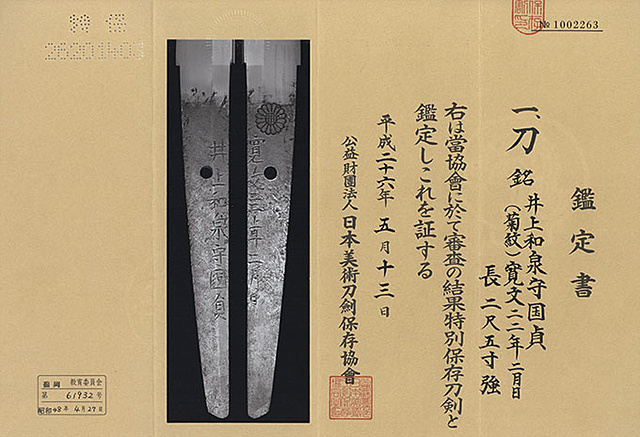 № 1002263
鑑定書
一、刀 銘 井上和泉守国貞
(菊紋)寛文二二年二月日
長 二尺五寸強
右は當協會に於て審査の結果特別保存刀剣と
鑑定しこれを証する
平成二十六年 五月十三日
公益財團法人 日本美術刀劍保存協會
井上和泉守国貞
教育委員会
第 61932 号
昭和48年 4月27日